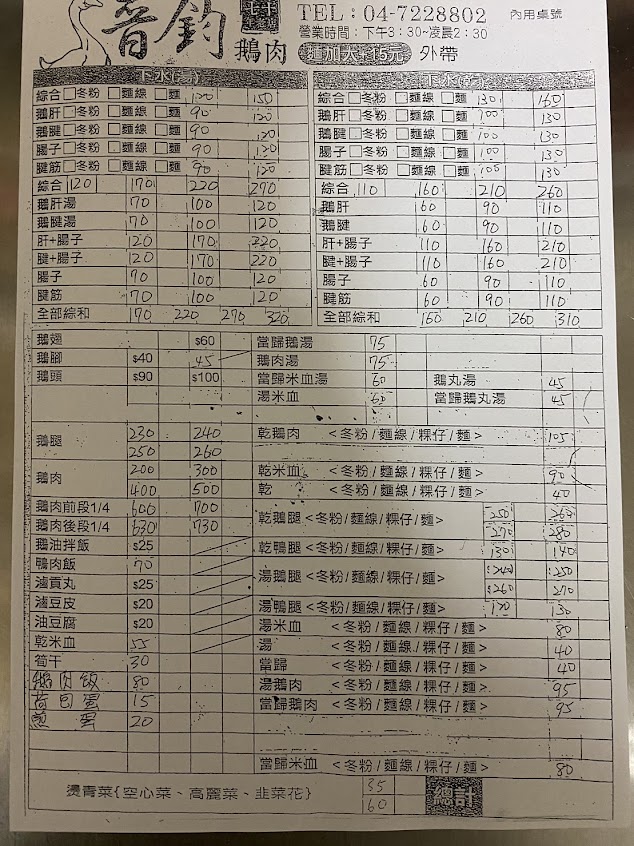 音鈞 鵝肉
TEL：04-7228802 內用桌號
營業時間：下午3：30~凌晨2：30
麵加大+15元 外帶
下水
綜合□冬粉 □麵線 □麵 120 150
鵝肝□冬粉 □麵線 □麵 90 120
鵝腱□冬粉 □麵線 □麵 90 120
腸子□冬粉 □麵線 □麵 90 120
腱筋□冬粉 □麵線 □麵 90 120
綜合 120 170 220 270
鵝肝湯 70 100 120
鵝腱湯 70 100 120
肝+腸子 120 170 220
腱+腸子 120 170 220
腸子 70 100 120
腱筋 70 100 120
全部綜和 170 220 270 320
下水
綜合□冬粉 □麵線 □麵 130 160
鵝肝□冬粉 □麵線 □麵 100 130
鵝腱□冬粉 □麵線 □麵 100 130
腸子□冬粉 □麵線 □麵 100 130
腱筋□冬粉 □麵線 □麵 100 130
綜合 110 160 210 260
鵝肝 60 90 110
鵝腱 60 90 110
肝+腸子 110 160 210
腱+腸子 110 160 210
腸子 60 90 110
腱筋 60 90 110
全部綜和 160 210 260 310
鵝翅 $60
鵝腳 $40 45
鵝頭 $90 $100
鵝腿 230 240
250 260
鵝肉 200 300
400 500
鵝肉前段1/4 600 700
鵝肉後段1/4 630 730
鵝油拌飯 $25
鴨肉飯 70
滷貢丸 $25
滷豆皮 $20
油豆腐 $20
乾米血 55
筍干 30
鵝肉飯 80
荷包蛋 15
蔥 蛋 20
當歸鵝湯 75
鵝肉湯 75
當歸米血湯 60 鵝丸湯 45
湯米血 60 當歸鵝丸湯 45
乾鵝肉 <冬粉/麵線/粿仔/麵> 105
乾米血 <冬粉/麵線/粿仔/麵> 90
乾 <冬粉/麵線/粿仔/麵> 40
乾鵝腿<冬粉/麵線/粿仔/麵> 250 260
270 280
乾鴨腿<冬粉/麵線/粿仔/麵> 130 140
湯鵝腿<冬粉/麵線/粿仔/麵> 250
260 270
湯鴨腿<冬粉/麵線/粿仔/麵> 120 130
湯米血 <冬粉/麵線/粿仔/麵> 80
湯 <冬粉/麵線/粿仔/麵> 40
當歸 <冬粉/麵線/粿仔/麵> 40
湯鵝肉 <冬粉/麵線/粿仔/麵> 95
當歸鵝肉 <冬粉/麵線/粿仔/麵> 95
當歸米血 <冬粉/麵線/粿仔/麵> 80
燙青菜{空心菜、高麗菜、韭菜花} 35
60
總計